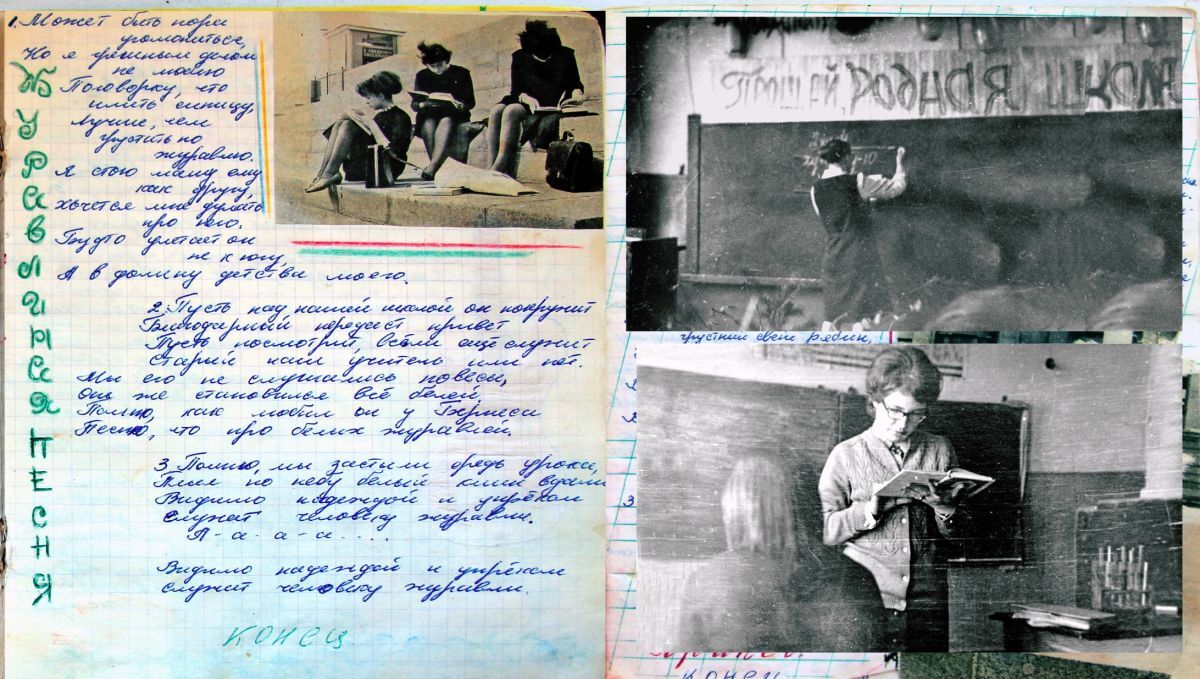 Журавлиная песня
1. Может быть пора
угомониться,
Но я грешным делом
не люблю
Поговорку, что
иметь синицу,
Лучше, чем
грустить по
журавлю.
Я стою машу ему
как другу,
хочется мне думать
про него.
Будто улетает он
не к югу,
А в долину детства моего.
2. Пусть над нашей школой он покружит
Благодарный передаст привет
Пусть посмотрит, всё ли ещё служит
Старый наш учитель или нет.
Мы его не слушались повесы,
Он же становился всё белей,
Помню, как любил он у
Песню, что про белых журавлей.
3. Помню, мы застыли средь урока,
Плыл по небу белый клин вдали
Видимо надеждой и упрёком
служат человеку журавли.
А-а-а-а.....
Видимо надеждой и упрёком
служат человеку журавли.
Конец
Прощай, родная школа
-10
грустний свет рябин,
3
Конец